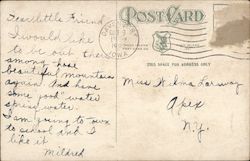 Dear little Friend
I would like
to be out there
among those
beautiful mountains
again. And have
some good water
spring water.
I am going to town
to school and I
like it
Mildred
POST CARD
THIS SPACE FOR ADDRESS ONLY
Miss Wilma
Apex
N.Y.